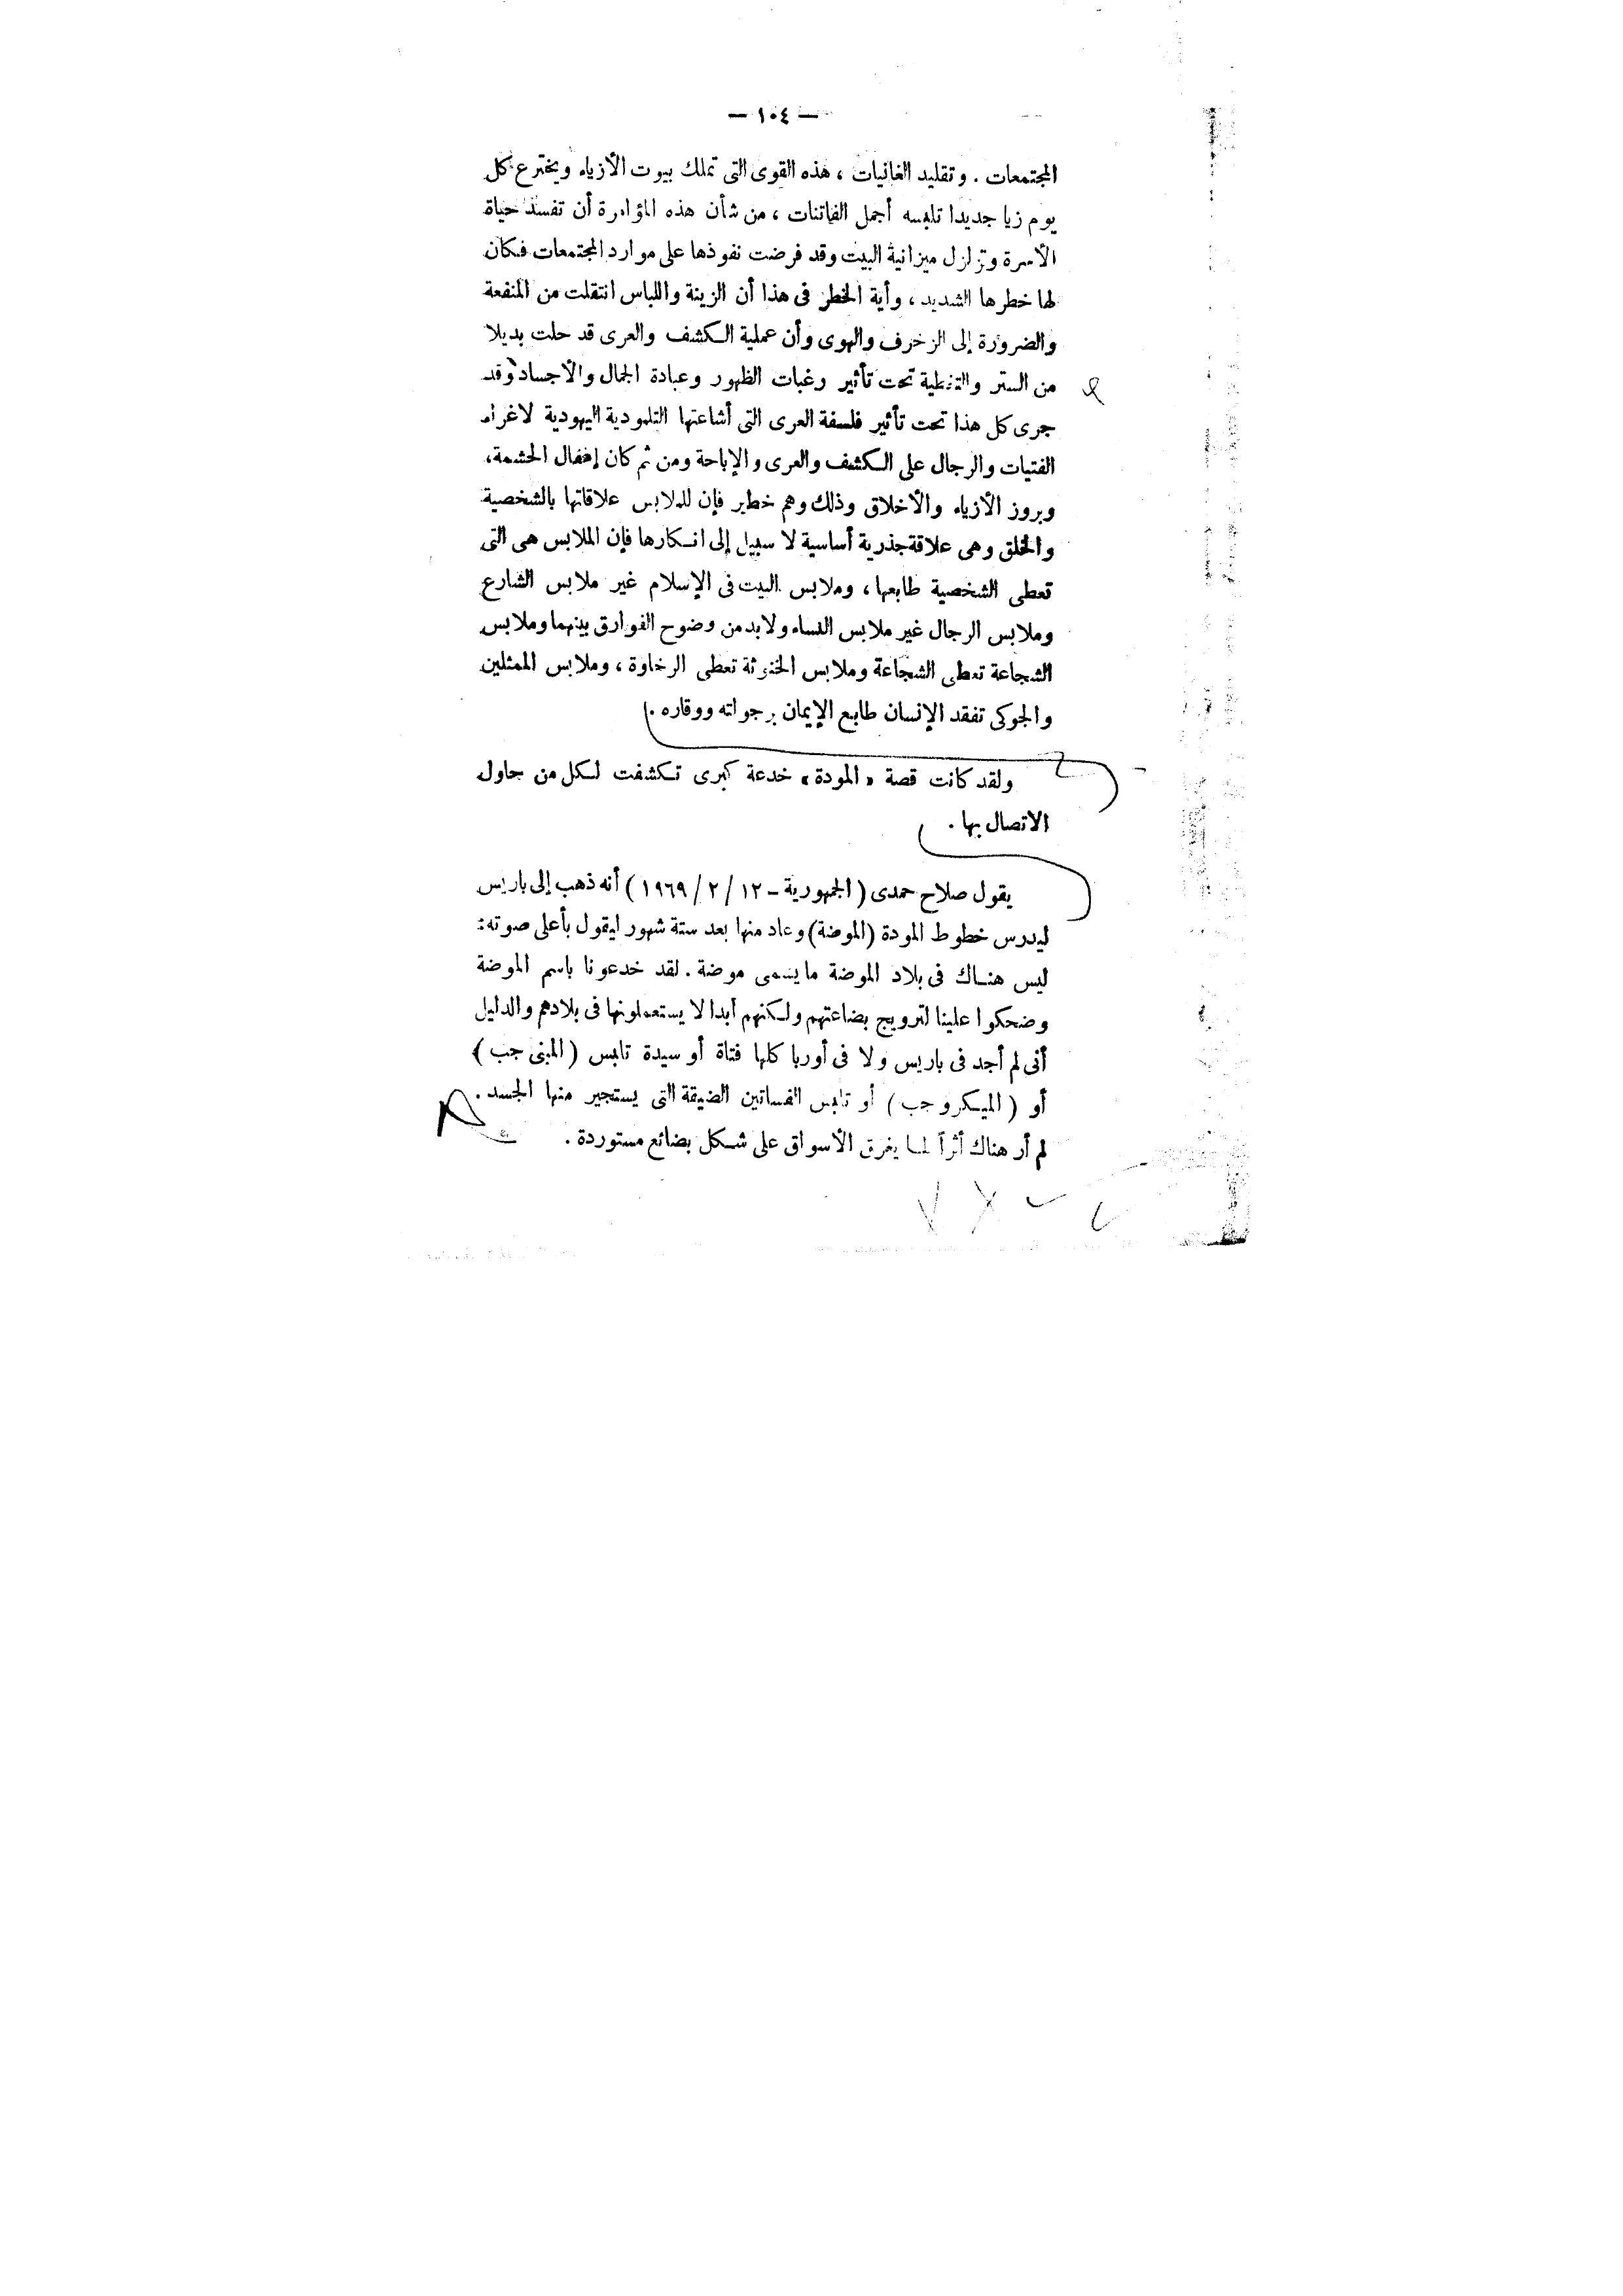 — ١٠٤ —
المجتمعات . وتقليد الغانيات ، هذه القوى التى تملك بيوت الأزياء ويخترع كل
يوم زيا جديدا تلبسه أجمل الفاتنات ، من شأن هذه المؤامرة أن تفسد حياة
الأسرة وتزلزل ميزانية البيت وقد فرضت نفوذها على موارد المجتمعات فكان
لها خطرها الشديد ، وأية الخطر فى هذا أن الزينة واللباس انتقلت من المنفعة
والضرورة إلى الزخرف والهوى وأن عملية الكشف والعرى قد حلت بديلا
من الستر والتغطية تحت تأثير رغبات الظهور وعبادة الجمال والأجساد وقد
جرى كل هذا تحت تأثير فلسفة العرى التى أشاعتها التلمودية اليهودية لاغراء
الفتيات والرجال على الكشف والعرى والإباحة ومن ثم كان إغفال الحشمة،
وبروز الأزياء والأخلاق وذلك وهم خطير فإن للملابس علاقاتها بالشخصية
والخلق وهى علاقة جذرية أساسية لا سبيل إلى انكارها فإن الملابس هى التى
تعطى الشخصية طابعها ، وملابس البيت فى الإسلام غير ملابس الشارع
وملابس الرجال غير ملابس النساء ولابد من وضوح الفوارق بينهما وملابس
الشجاعة تعطى الشجاعة وملابس الخنوثة تعطى الرخاوة ، وملابس الممثلين
والجوكى تفقد الإنسان طابع الإيمان برجولته ووقاره .
ولقد كانت قصة « المودة » خدعة كبرى تكشفت لكل من حاول
الاتصال بها .
يقول صلاح حمدى ( الجمهورية – ١٢ / ٢ / ١٩٦٩ ) أنه ذهب إلى باريس
ليدرس خطوط المودة (الموضة) وعاد منها بعد ستة شهور ليقول بأعلى صوته:
ليس هناك فى بلاد الموضة ما يسمى موضة . لقد خدعونا باسم الموضة
وضحكوا علينا لترويج بضاعتهم ولكنهم أبدا لا يستعملونها فى بلادهم والدليل
أنى لم أجد فى باريس ولا فى أوربا كلها فتاة أو سيدة تلبس ( المينى جب )
أو ( الميكروجب ) أو تلبس الفساتين الضيقة التى يستجير منها الجسد .
لم أر هناك أثراً لما يغرق الأسواق على شكل بضائع مستوردة .